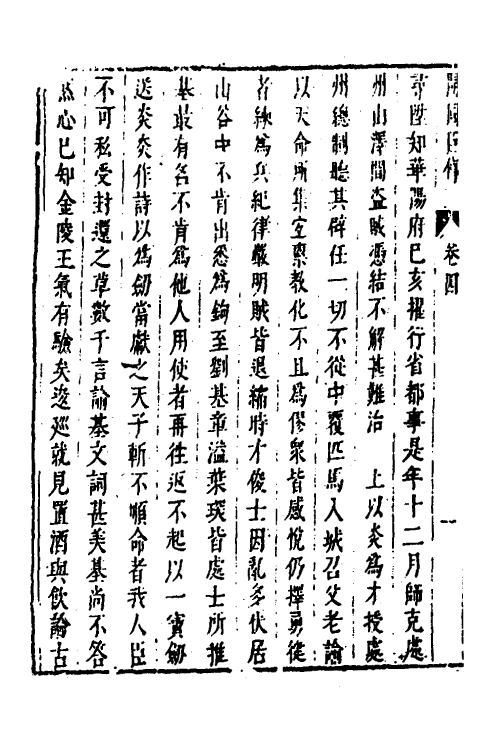 開國臣傳 卷四 一
尋陞知華陽府己亥擢行省都事是年十二月師克處
州山澤間盗賊憑結不解甚難治 上以炎爲才授處
州總制聽其辟任一切不從中覆匹馬入城召父老諭
以天命所集宜稟教化不且爲僇衆皆感悅仍擇勇徤
者練爲兵紀律嚴明賊皆退縮時才俊士因亂多伏居
山谷中不肯出悉爲鉤至劉基章溢葉琛皆處士所推
基最有名不肯爲他人用使者再往返不起以一寳劒
送炎炎作詩以爲劒當獻之天子斬不順命者我人臣
不可私受封還之草數千言諭基文詞甚美基尚不答
然心已知金陵王氣有驗矣逡廵就見置酒與飲論古